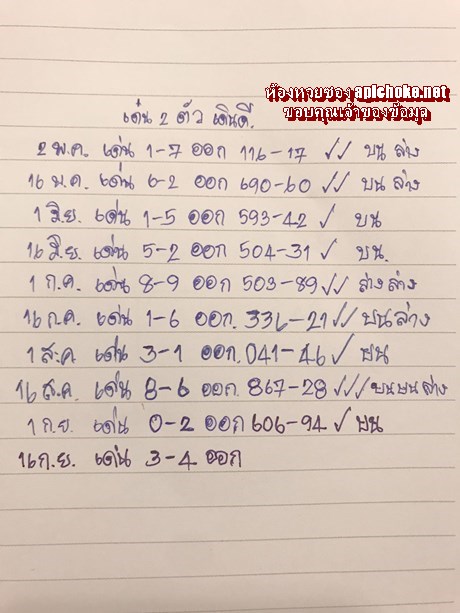 ห้องหวยซอง apichoke.net
ขอบคุณเจ้าของข้อมูล
เด่น 2 ตัว เดินดี.
2 พ.ค. เด่น 1-7 ออก 116-17 ✓✓ บน ล่าง
16 พ.ค. เด่น 6-2 ออก 690-60 ✓✓ บน ล่าง
1 มิ.ย. เด่น 1-5 ออก 593-42 ✓ บน
16 มิ.ย. เด่น 5-2 ออก 504-31 ✓ บน.
1 ก.ค. เด่น 8-9 ออก 503-89 ✓✓ ล่าง ล่าง
16 ก.ค. เด่น 1-6 ออก. 336-21 ✓✓ บน ล่าง
1 ส.ค เด่น 3-1 ออก. 041-46 ✓ บน
16 ส.ค. เด่น 8-6 ออก. 867-28 ✓✓✓ บน บน ล่าง
1 ก.ย. เด่น 0-2 ออก 606-94 ✓ บน
16 ก.ย. เด่น 3-4 ออก